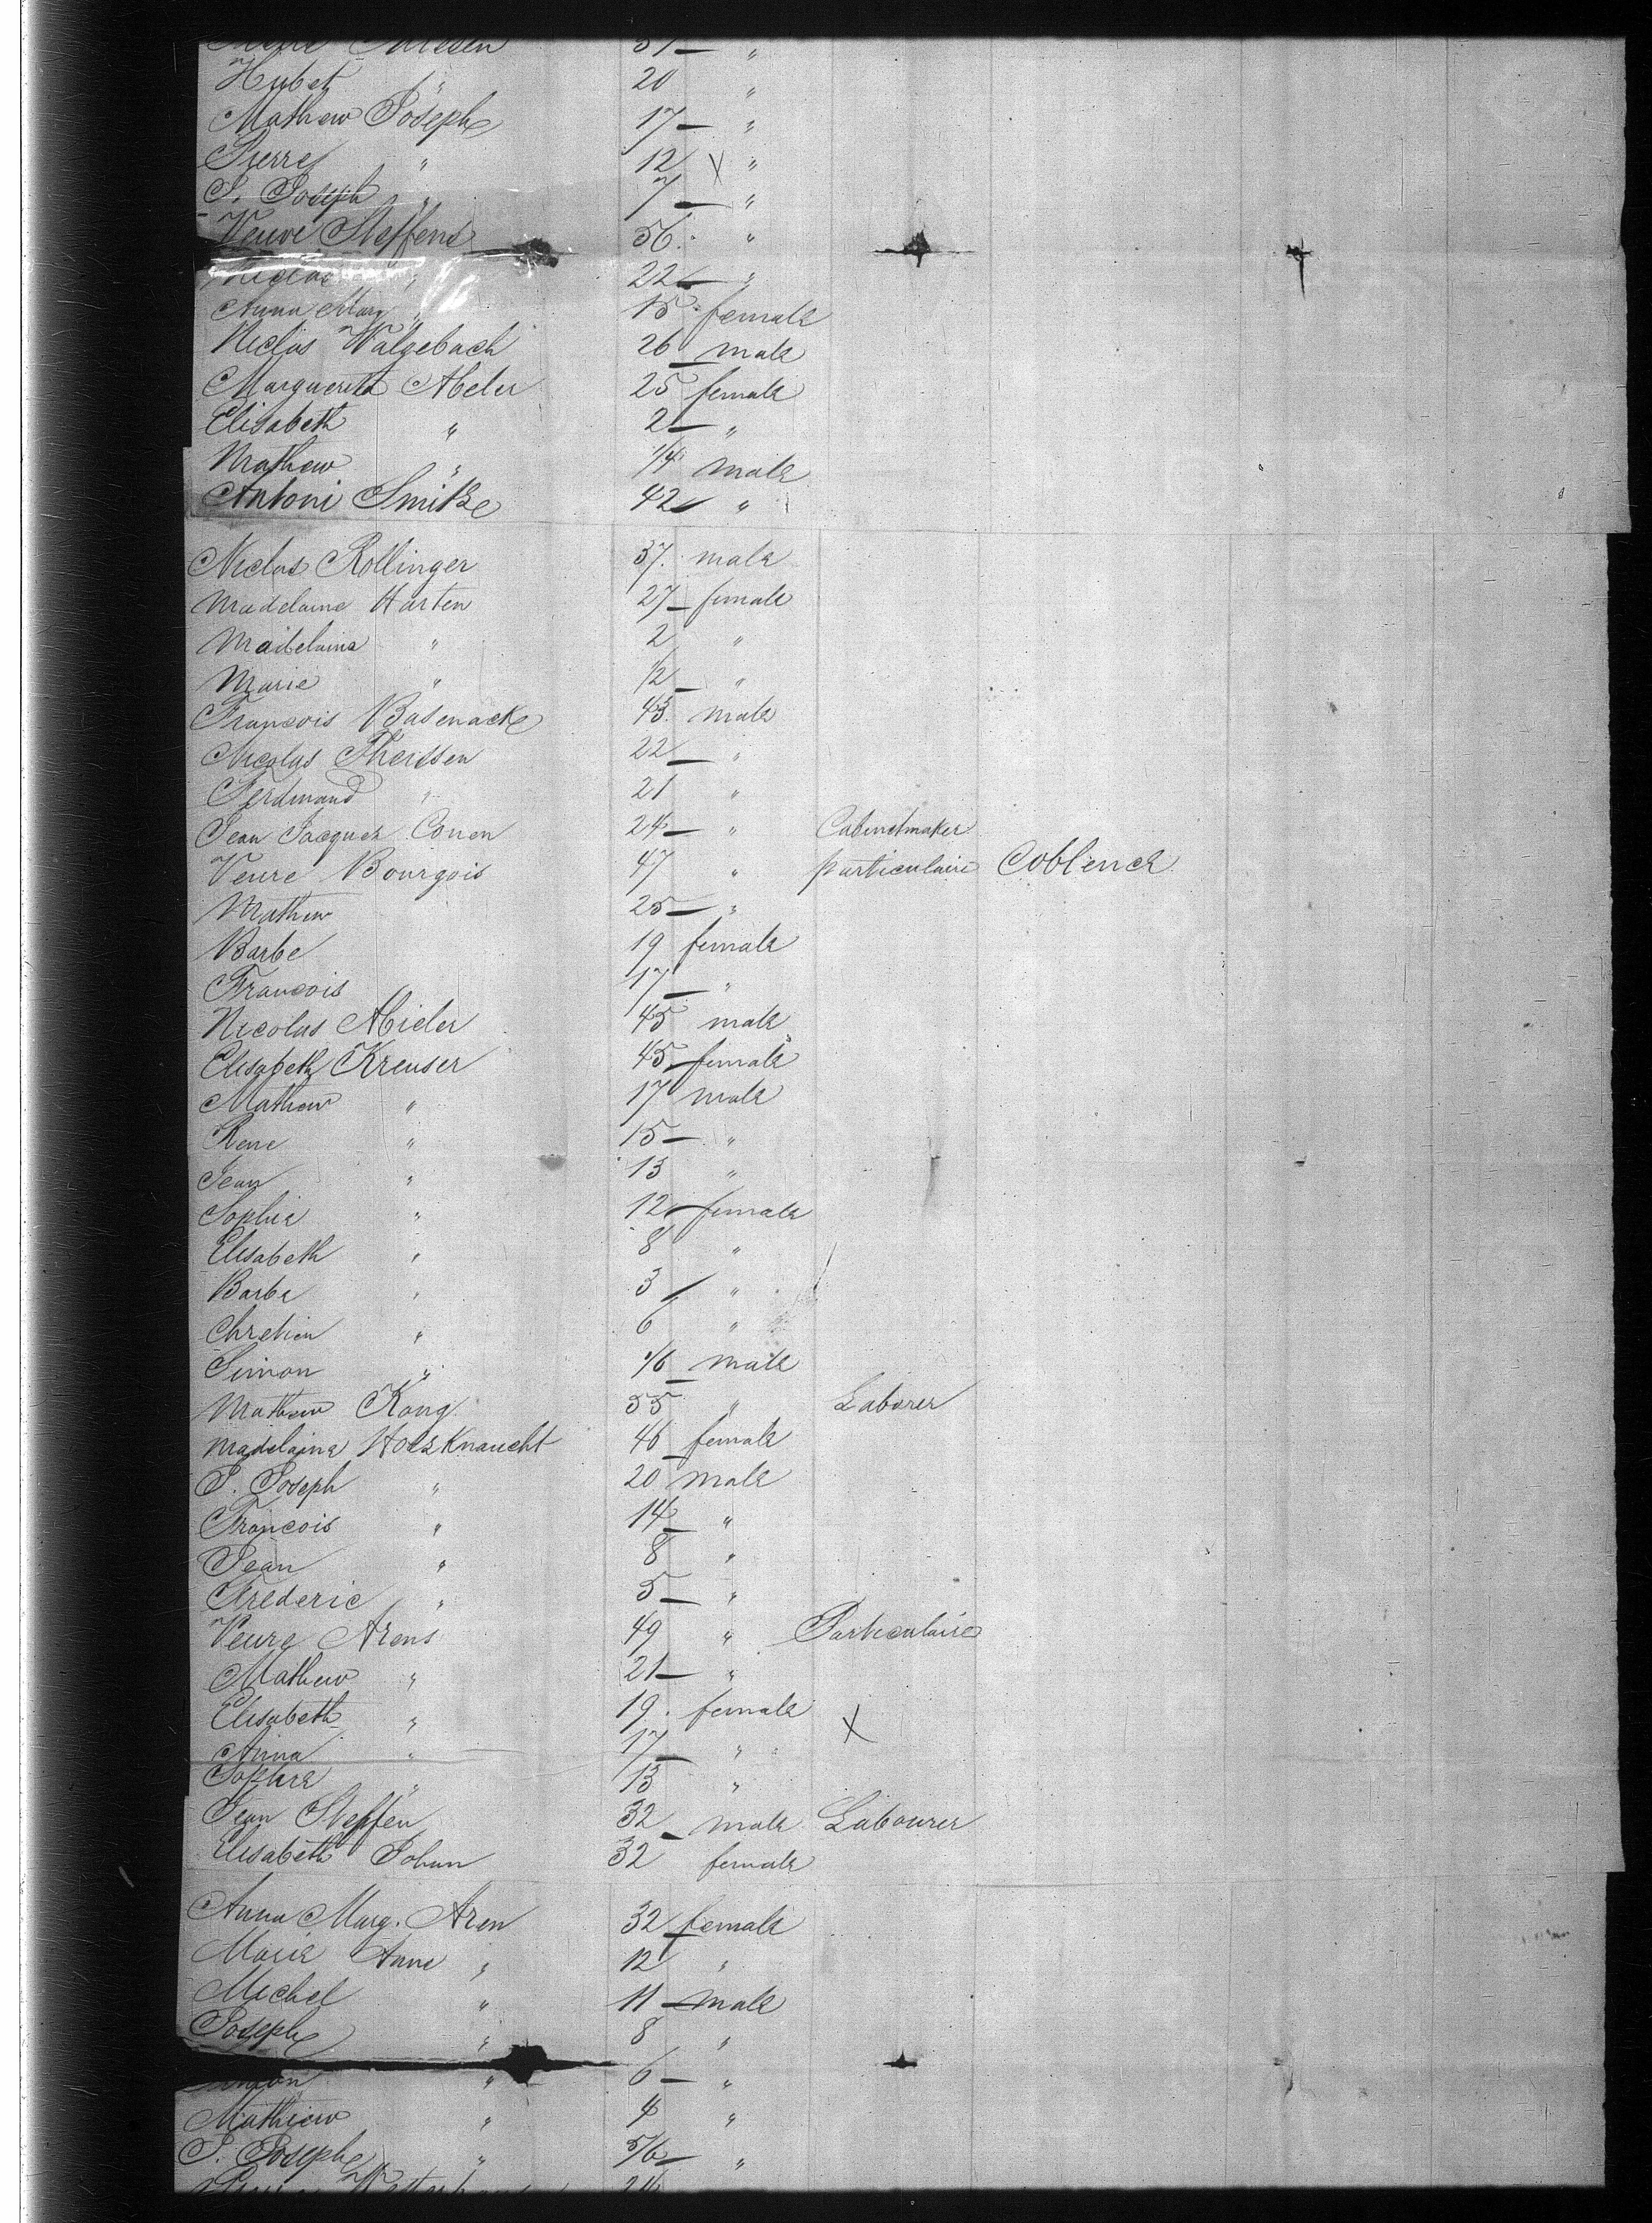 Hubet " 20 "
Mathew Joseph 17 — "
Pierre " 12 X "
P. Joseph " 7 — "
Veuve Steffens 56. "
Niclas " 22 — "
Anna Marg " 15 female
Niclas Walgebach 26 male
Marguerita Abeler 25 female
Elisabeth " 2 — "
Mathew " 1/4 male
Antoni Smitz 42 "
Niclas Rollinger 37. male
Madelaine Harten 27 — female
Madelaina " 2 "
Marie " 1/2 — "
Francois Basenacke 43. male
Nicolas Theissen 22 — "
Ferdinand " 21 "
Jean Jacques Conen 24 — " Cabinetmaker
Veuve Bourgois 47 " particulaire Coblence
Mathew 25 — "
Barbe 19 female
Francois 17 — "
Nicolas Abieler 45 male
Elisabeth Kreuser 45 — female
Mathew " 17 male
Rene " 15 — "
Jean " 13 "
Sophie " 12 — female
Elisabeth " 8 "
Barbe " 3 — "
Chretien " 6 "
Simon " 1/6 male
Mathew Kong 55 " Laborer
Madelaine Holzknaucht 46 female
P. Joseph " 20 male
Francois " 14 — "
Jean " 8 "
Frederic " 5 — "
Veuve Arens 49 " Particulaire
Mathew " 21 — "
Elisabeth " 19. female X
Anna " 17 — "
Sophie " 13 "
Jean Steffen 32 — male Labourer
Elisabeth Johan 32 female
Anna Marg. Aren 32 female
Marie Anne " 12 "
Michel " 11 — male
Joseph " 8 "
" 6 — "
Mathiew " 4 "
P. Joseph " 5/6 — "